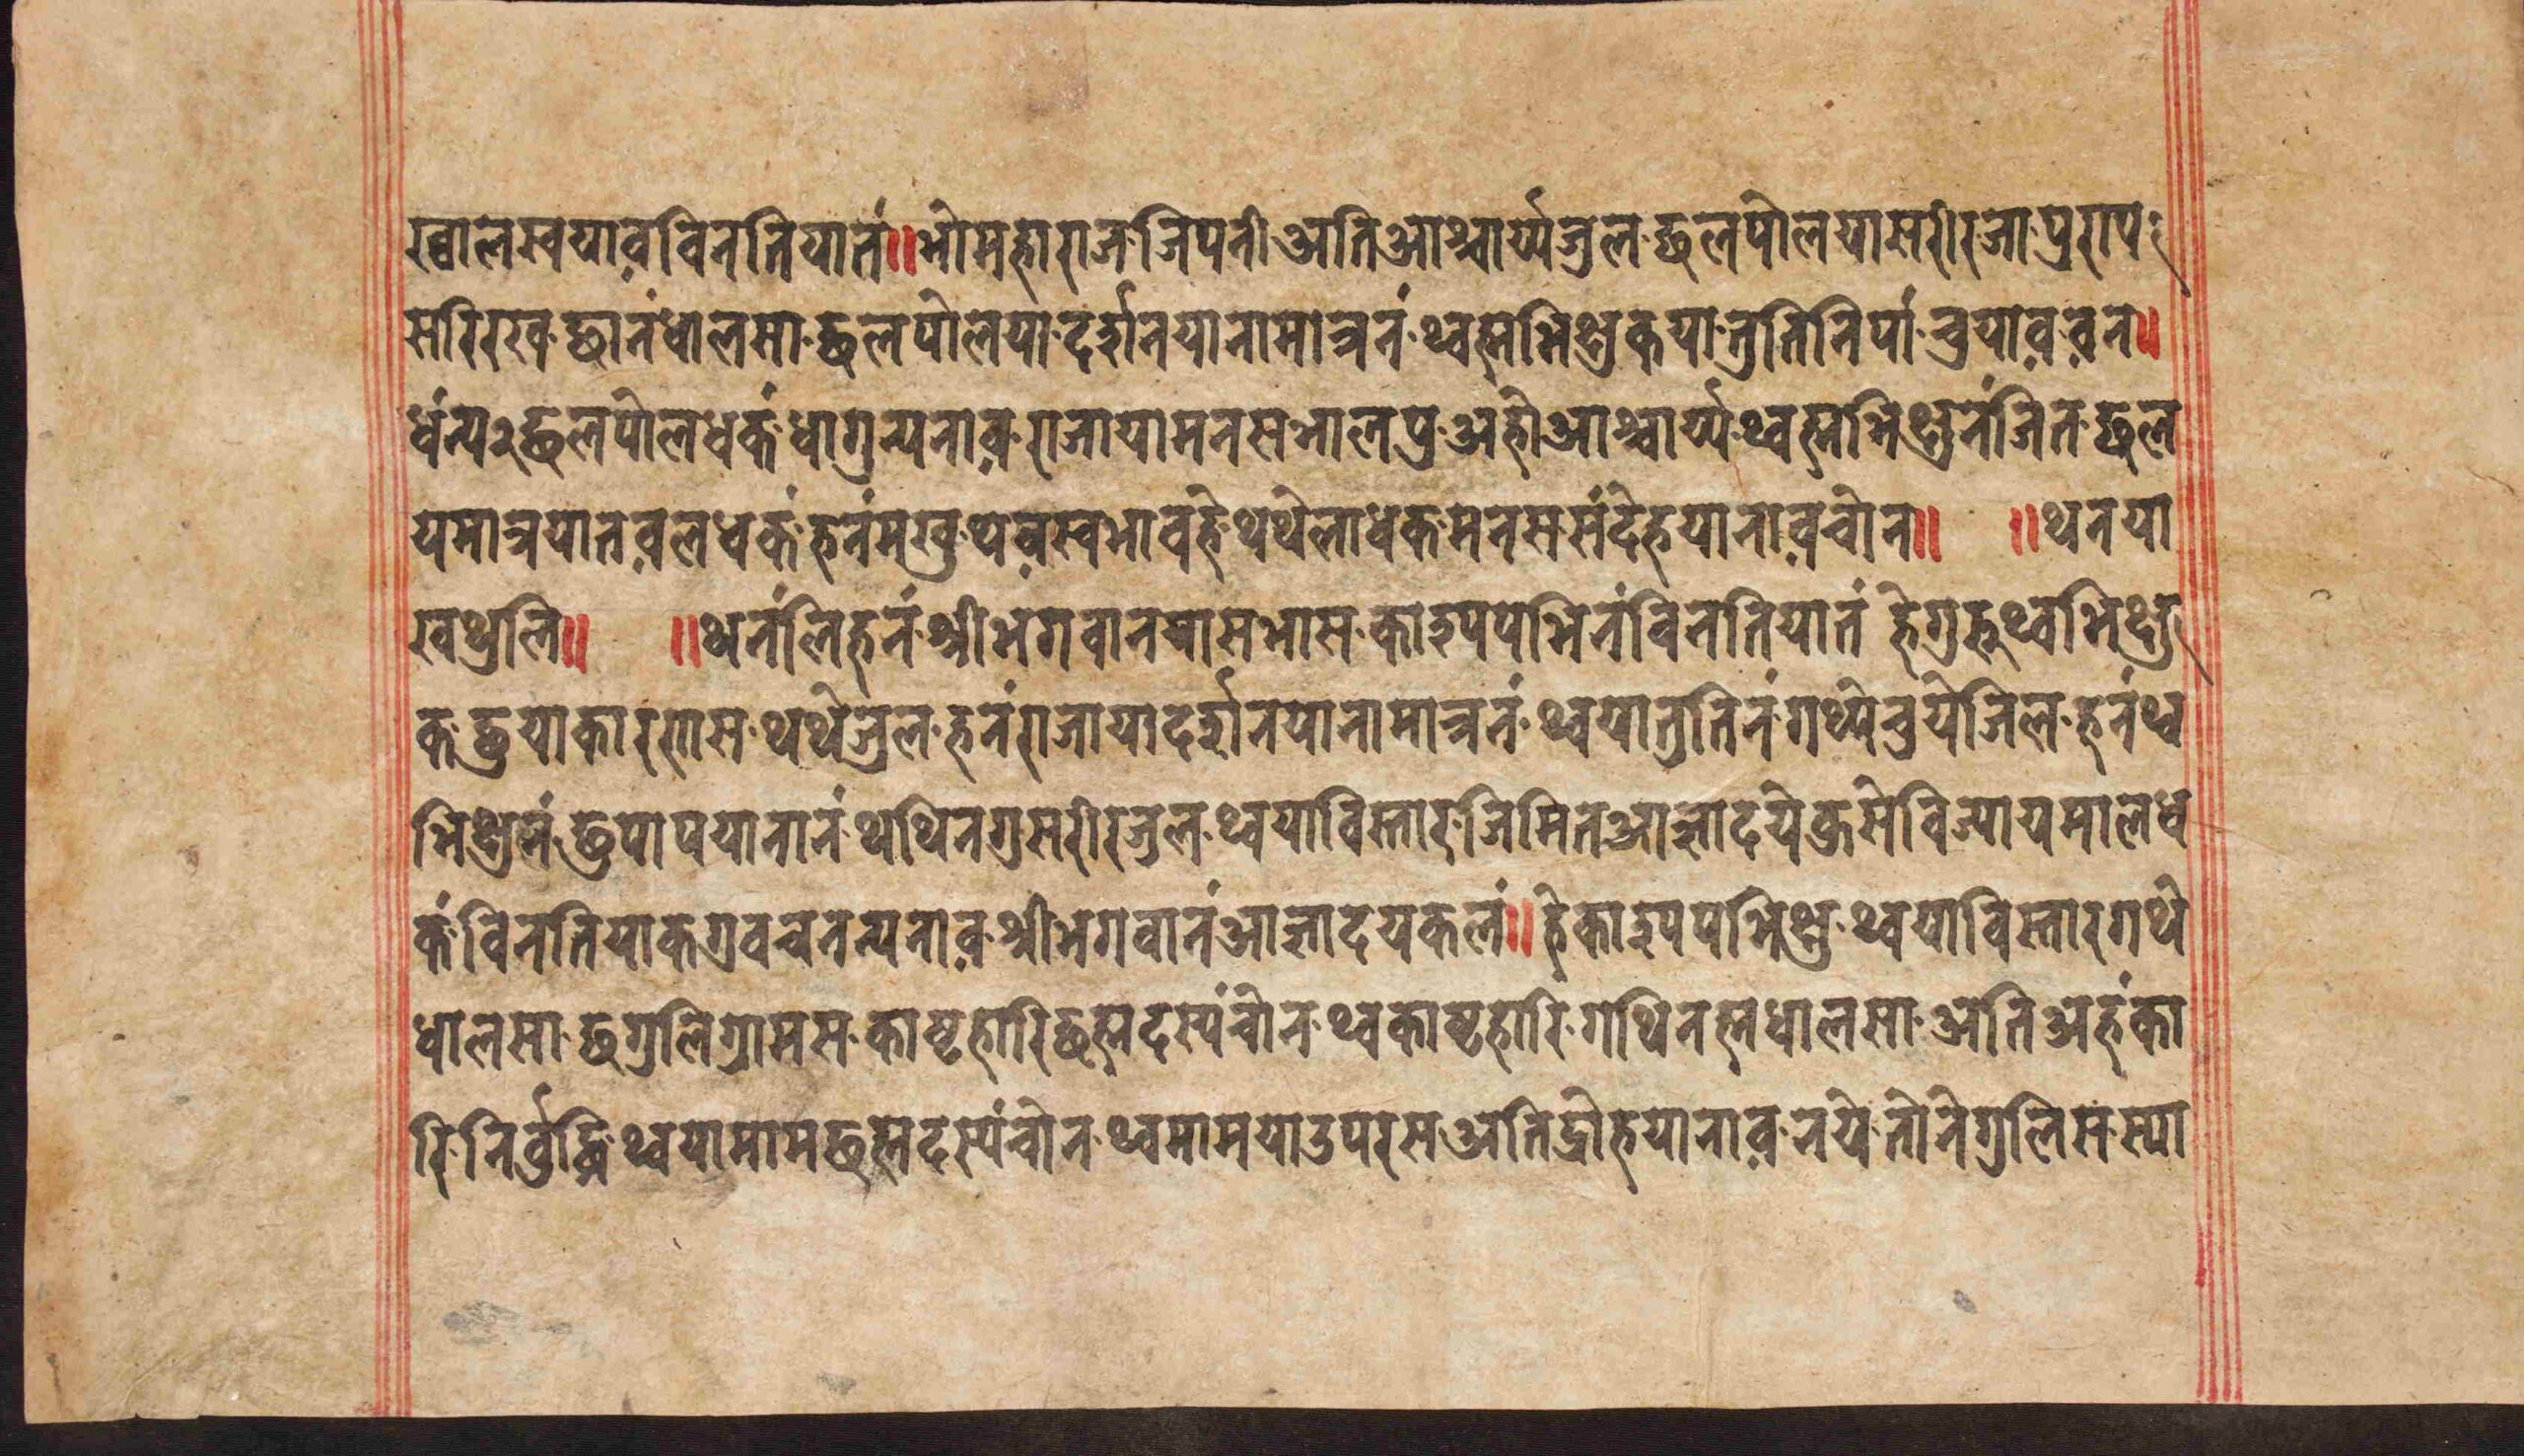 ख्वालस्वयाव़विनतियातं॥भोमहाराजजिपनीअतिआश्चार्य्यजुलछलपोलयासरीरजापुराप
सरिरखछानंधालसाछलपोलयादर्शनयानामात्रनंथ्वह्मभिक्षुकयानुतिनिर्पांचुयाव़व़न॥
धंन्य२छलपोलधकंधागुन्यनाव़राजायामनसभालपुअहोआश्चार्य्यथ्वह्मभिक्षुनंजितछल
यमात्रयातव़लधकंहनंमखुथ्यव़स्वभावहेथथेलाधकमनससंदेहयानाव़चोन॥ ॥थनया
खथुलि॥ ॥थनंलिहनंश्रीभगवानयासभासकाश्यपभिनंविनतियातंहेगुरुथ्वभिक्षु
कछुयाकारणसथथेजुलहनंराजायादर्शनयानामात्रनंथ्वयानुतिनंगथ्येचुयेजिलहनंथ्व
भिक्षुनंछुपापयानानंथथिनगुसरीरजुलथ्वयाविस्तारजिमितआज्ञादयेकुसेविज्यायमालध
कंविनतियाकगुवचनन्यनाव़श्रीभगवानंआज्ञादयकलं॥हेकाश्यपभिक्षुथ्वयाविस्तारगथे
धालसाछगुलिग्रामसकाष्टहारिछह्मदस्यंचोनथ्वकाष्टहारिगथिनह्मधालसाअतिअहंका
रिनिर्वुद्धिथ्वयामामछह्मदस्यंचोनथ्वमामयाउपरसअतिद्रोहयानाव़नयेतोनेगुलिसस्या